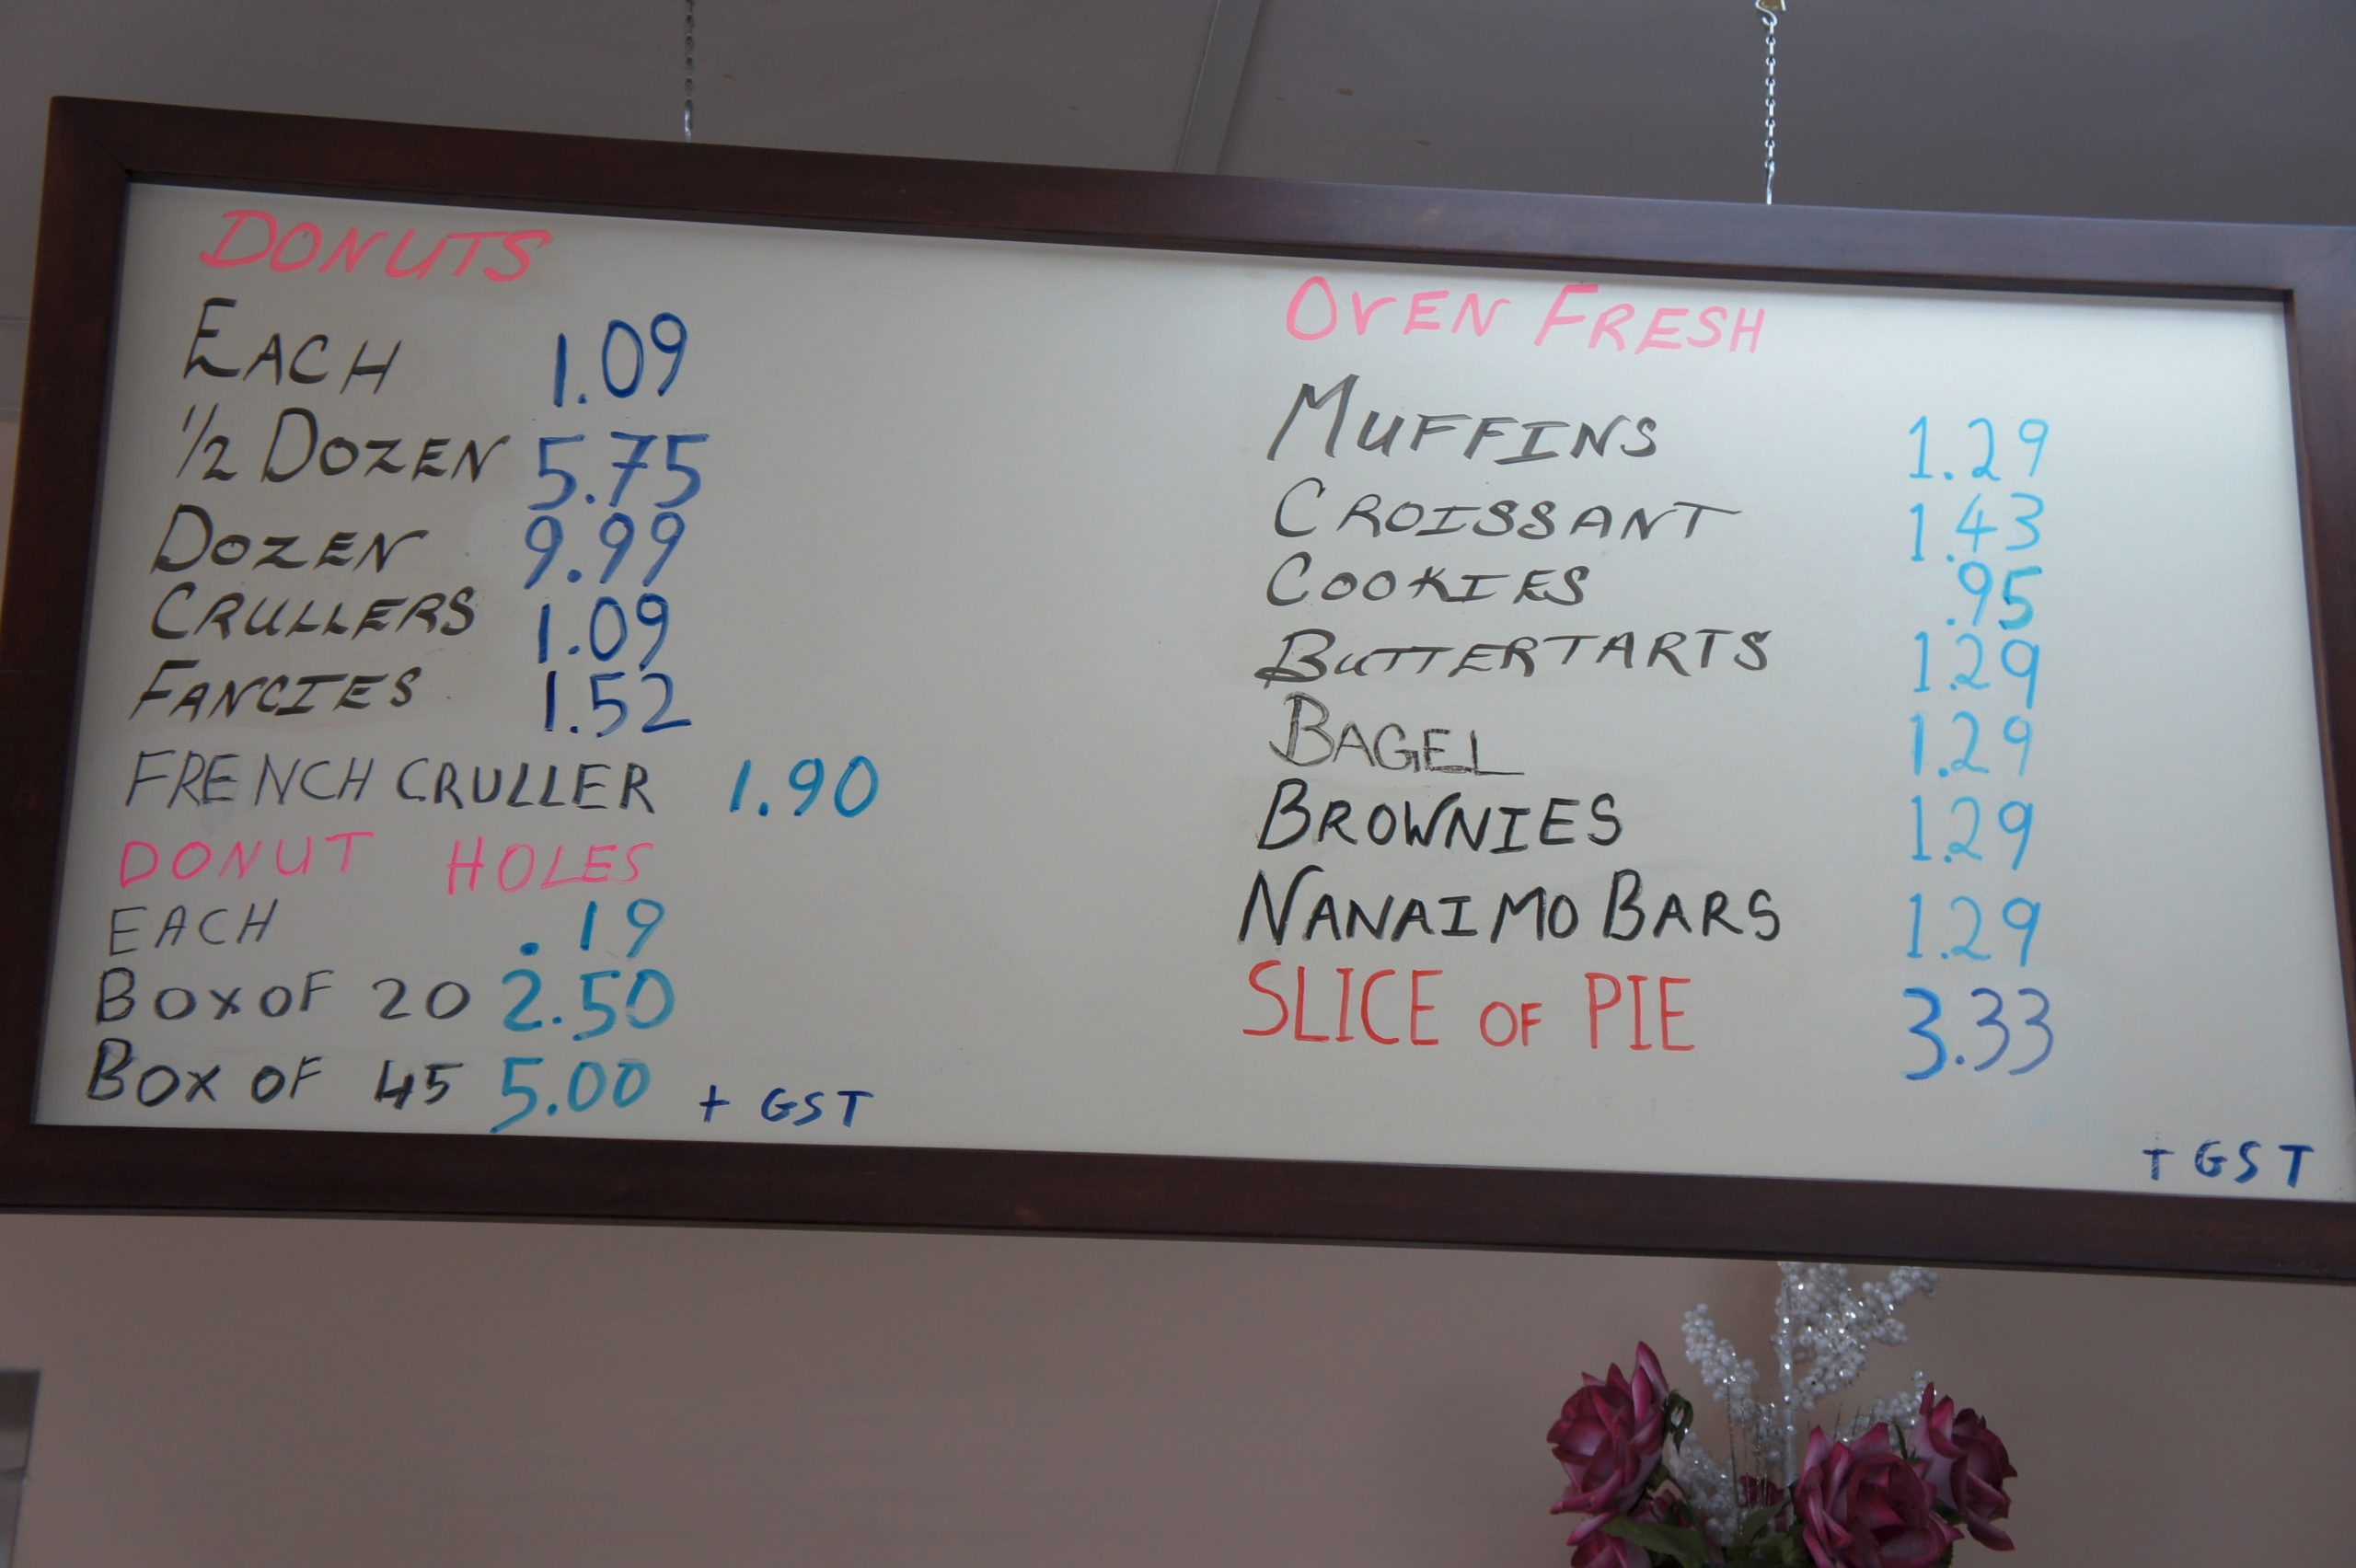 DONUTS
EACH 1.09
1/2 DOZEN 5.75
DOZEN 9.99
CRULLERS 1.09
FANCIES 1.52
FRENCH CRULLER 1.90
DONUT HOLES
EACH .19
BOX OF 20 2.50
BOX OF 45 5.00 + GST
OVEN FRESH
MUFFINS 1.29
CROISSANT 1.43
COOKIES .95
BUTTERTARTS 1.29
BAGEL 1.29
BROWNIES 1.29
NANAIMO BARS 1.29
SLICE OF PIE 3.33
+ GST